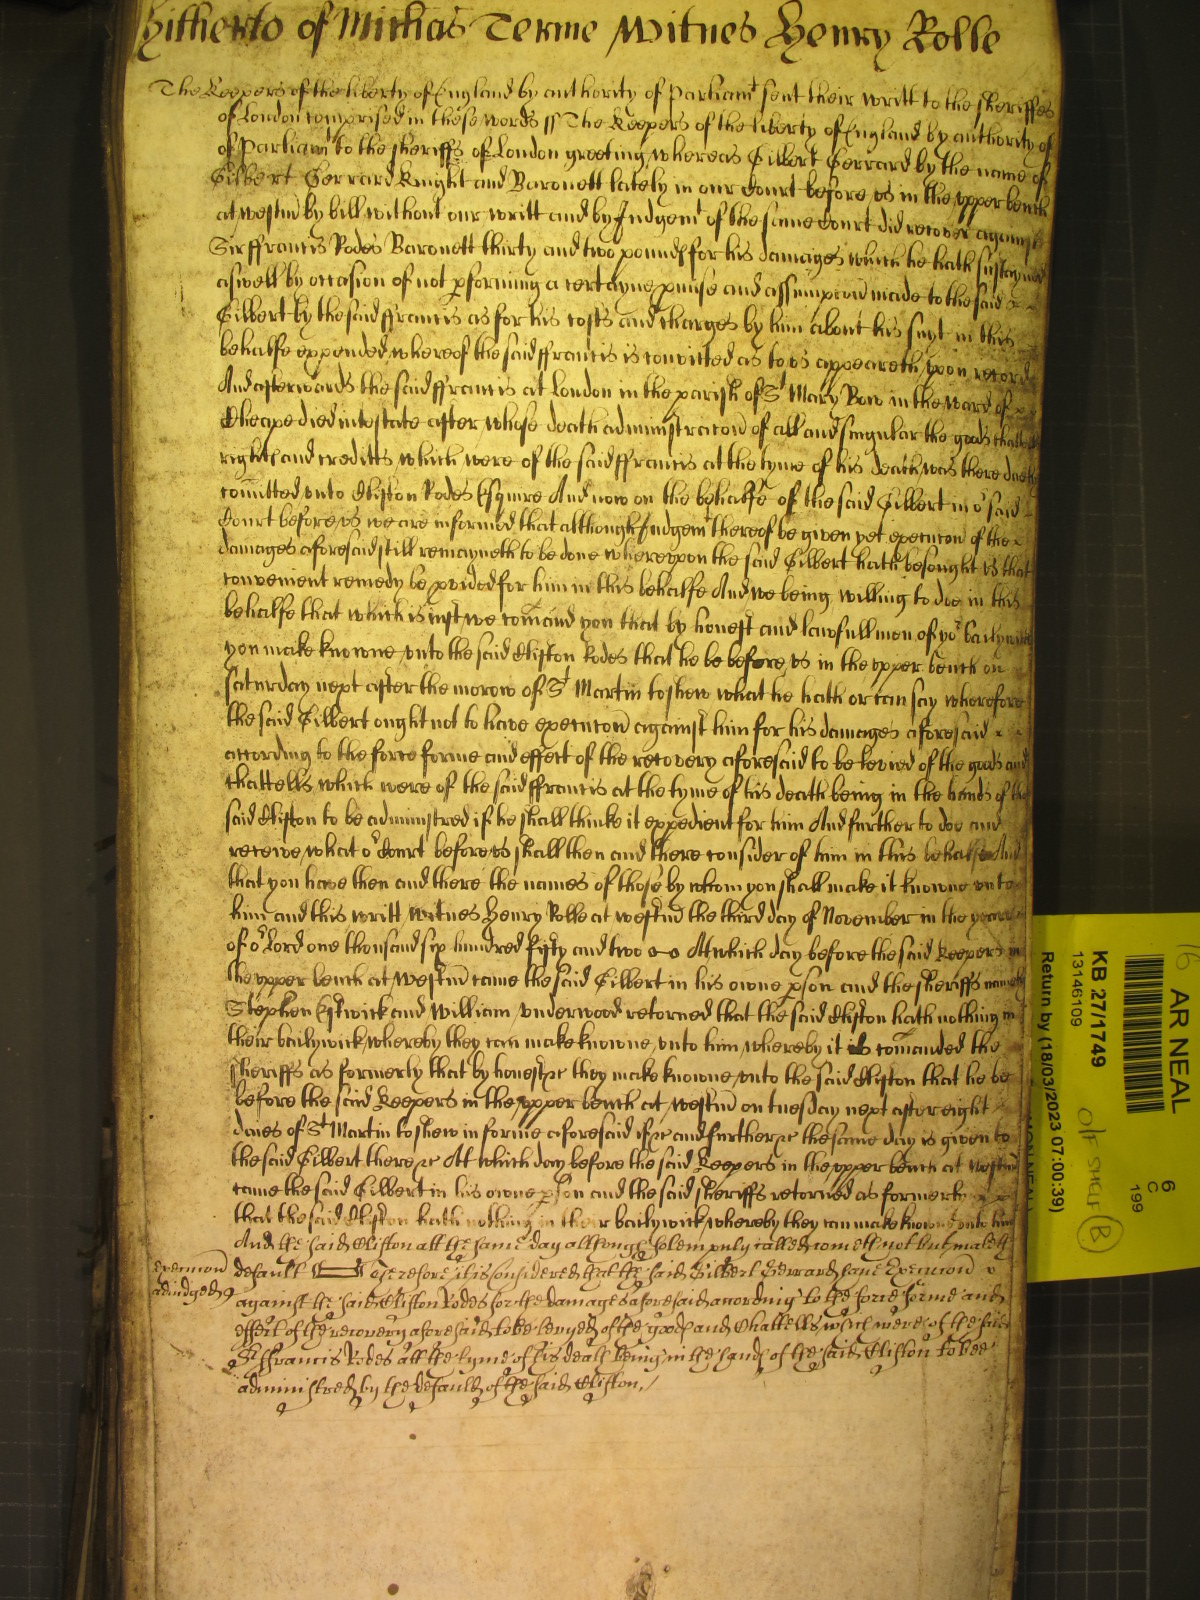 hitherto of Michas Terme Witnes Henry Rolle
The Keepers of the liberty of England by authority of Parliamt sent their writt to the sheriffes
of London comprised in these words ss The Keepers of the liberty of England by authority of
of Parliamt to the sheriffs of London greeting whereas Gilbert Gerrard by the name of
Gilbert Gerrard Knight and Baronett lately in our Court before us in the upper bench
at westmr by bill without our writt and by Judgemt of the same Court did recover against
Sir ffrancis Rodes Baronett thirty and two pounds for his damages which he hath sustayned
aswell by occasion of not pforming a certayne pmise and assumpcion made to the said
Gilbert by the said ffrancis as for his costs and charges by him about his suyt in this
behalfe expended whereof the said ffrancis is convicted as to us appeareth upon record
And afterwards the said ffrancis at London in the parish of St Mary Bow in the ward of
Cheape died intestate after whose death administracon of all and singular the goods chattells
rights and creditts which were of the said ffrancis at the tyme of his death was there duely
comitted unto Clifton Rodes Esquire And now on the behalfe of the said Gilbert in or said
Court before us we are informed that although Judgemt thereof be given yet execucon of the
damages aforesaid still remayneth to be done whereupon the said Gilbert hath besought us that
convenient remedy be pvided for him in this behalfe And we being willing to doe in this
behalfe that which is just we comaund you that by honest and lawfull men of yor bailywick
you make knowne unto the said Clifton Rodes that he be before us in the upper bench on
saturday next after the morow of St Martin to shew what he hath or can say wherefore
the said Gilbert ought not to have execucon against him for his damages aforesaid
according to the force forme and effect of the recovery aforesaid to be levied of the goods and
chattells which were of the said ffrancis at the tyme of his death being in the hands of the
said Clifton to be administred if he shall thinke it expedient for him And further to doe and
receive what or Court before us shall then and there consider of him in this behalfe And
that you have then and there the names of those by whom you shall make it knowne unto
him and this writt witnes Henry Rolle at westmr the third day of November in the yeare
of or Lord one thousand six hundred fifty and two At which day before the said Keepers in
the upper bench at Westmr came the said Gilbert in his owne pson and the sheriffs namely
Stephen Estwick and William Underwood retorned that the said Clifton hath nothing in
their bailywick whereby they can make knowne unto him whereby it is comanded the
sheriffs as formerly that by honest &c they make knowne unto the said Clifton that he be
before the said Keepers in the upper bench at westmr on tuesday next after eight
daies of St Martin to shew in forme aforesaid if &c and further &c the same day is given to
the said Gilbert there &c At which day before the said Keepers in the upper bench at westmr
came the said Gilbert in his owne pson and the said sheriffs retorned as formerly
that the said Clifton hath nothing in their bailywick whereby they can make knowne unto him
And the said Clifton att the same day although solempnly called cometh not but maketh
default Therefore it is considered that the said Gilbert Gerrard have Execucon
Execucon
adiudged
against the said Clifton Rodes for the damages aforesaid according to the force forme and
effect of the recovery aforesaid to be levyed of the goods and Chattells which were of the said
Sr ffrancis Rodes att the tyme of his death being in the hands of the said Clifton to bee
administred by the default of the said Clifton
16
AR NEAL
KB 27/1749
13146109
Return by (18/03/2023 07:00:39)
O/F SHELF B
6
C
199